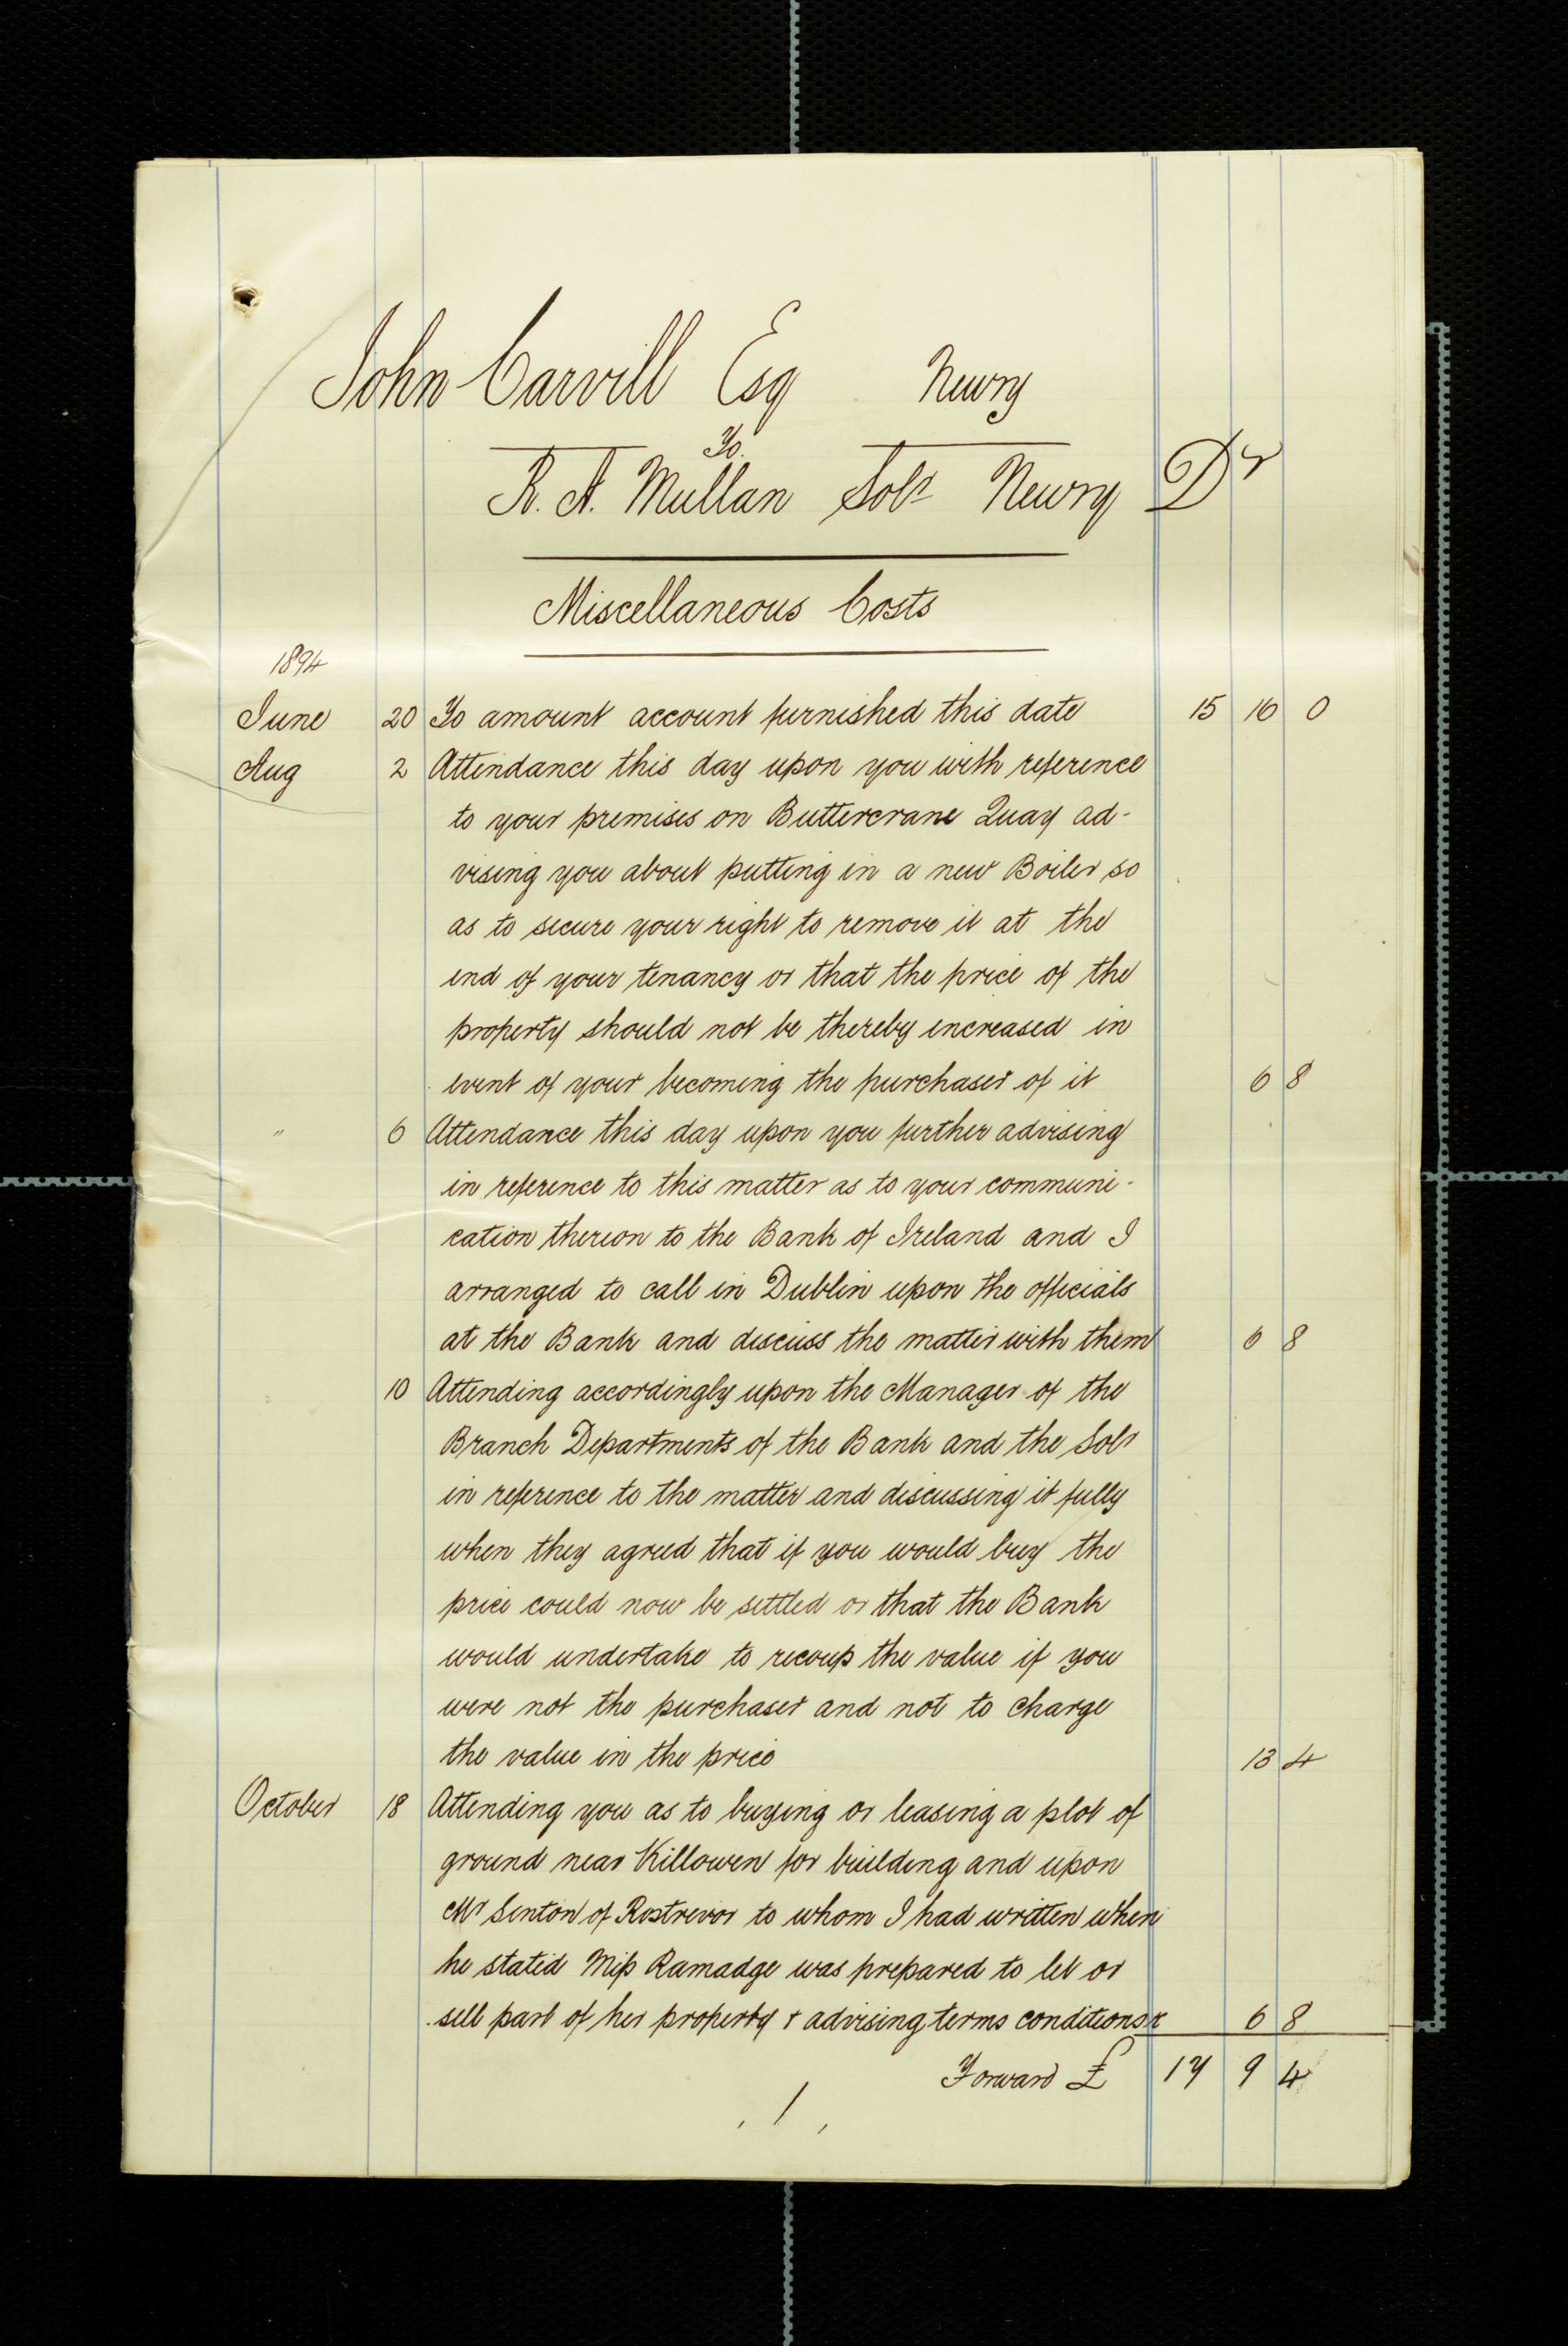 John Carvill Esq Newry
To
R. A. Mullan Solr Newry Dr
Miscellaneous Costs
1894
June 20 To amount account furnished this date 15 16 0
Aug 2 Attendance this day upon you with reference
to your premises on Buttercrane Quay ad-
vising you about putting in a new Boiler so
as to secure your right to remove it at the
end of your tenancy or that the price of the
property should not be thereby increased in
event of your becoming the purchaser of it 6 8
" 6 Attendance this day upon you further advising
in reference to this matter as to your communi-
cation thereon to the Bank of Ireland and I
arranged to call in Dublin upon the officials
at the Bank and discuss the matter with them 6 8
10 Attending accordingly upon the Manager of the
Branch Departments of the Bank and the Solr
in reference to the matter and discussing it fully
when they agreed that if you would buy the
price could now be settled or that the Bank
would undertake to recoup the value if you
were not the purchaser and not to charge
the value in the price 13 4
October 18 Attending you as to buying or leasing a plot of
ground near Killowen for building and upon
Mr Senton of Rostrevor to whom I had written when
he stated Miss Ramadge was prepared to let or
sell part of her property & advising terms conditions &c 6 8
Forward £ 17 9 4
1